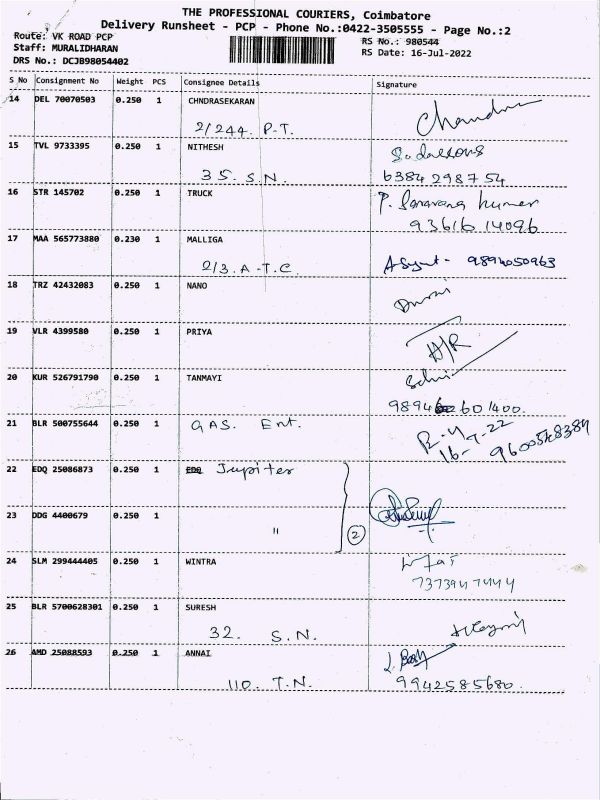 THE PROFESSIONAL COURIERS, Coimbatore
Delivery Runsheet - PCP - Phone No.:0422-3505555 - Page No.:2
Route: VK ROAD PCP
RS No.: 980544
Staff: MURALIDHARAN
RS Date: 16-Jul-2022
DRS No.: DCJB98054402
S No Consignment No Weight PCS Consignee Details Signature
14 DEL 70070503 0.250 1 CHNDRASEKARAN
2/244. P.T.
15 TVL 9733395 0.250 1 NITHESH
35. S.N. 6384298754
16 STR 145702 0.250 1 TRUCK P. Saravana kumar
93616 14096
17 MAA 565773880 0.230 1 MALLIGA
2/3. A-T.C. 9894050963
18 TRZ 42432083 0.250 1 NANO
19 VLR 4399580 0.250 1 PRIYA
20 KUR 526791790 0.250 1 TANMAYI
21 BLR 500755644 0.250 1 GAS. Ent.
16-7-22
22 EDQ 25086873 0.250 1 Jupiter
23 DDG 4400679 0.250 1 " 2
24 SLM 299444405 0.250 1 WINTRA
25 BLR 5700628301 0.250 1 SURESH
32. S.N.
26 AMD 25088593 0.250 1 ANNAI
110. T.N. 9942585680.